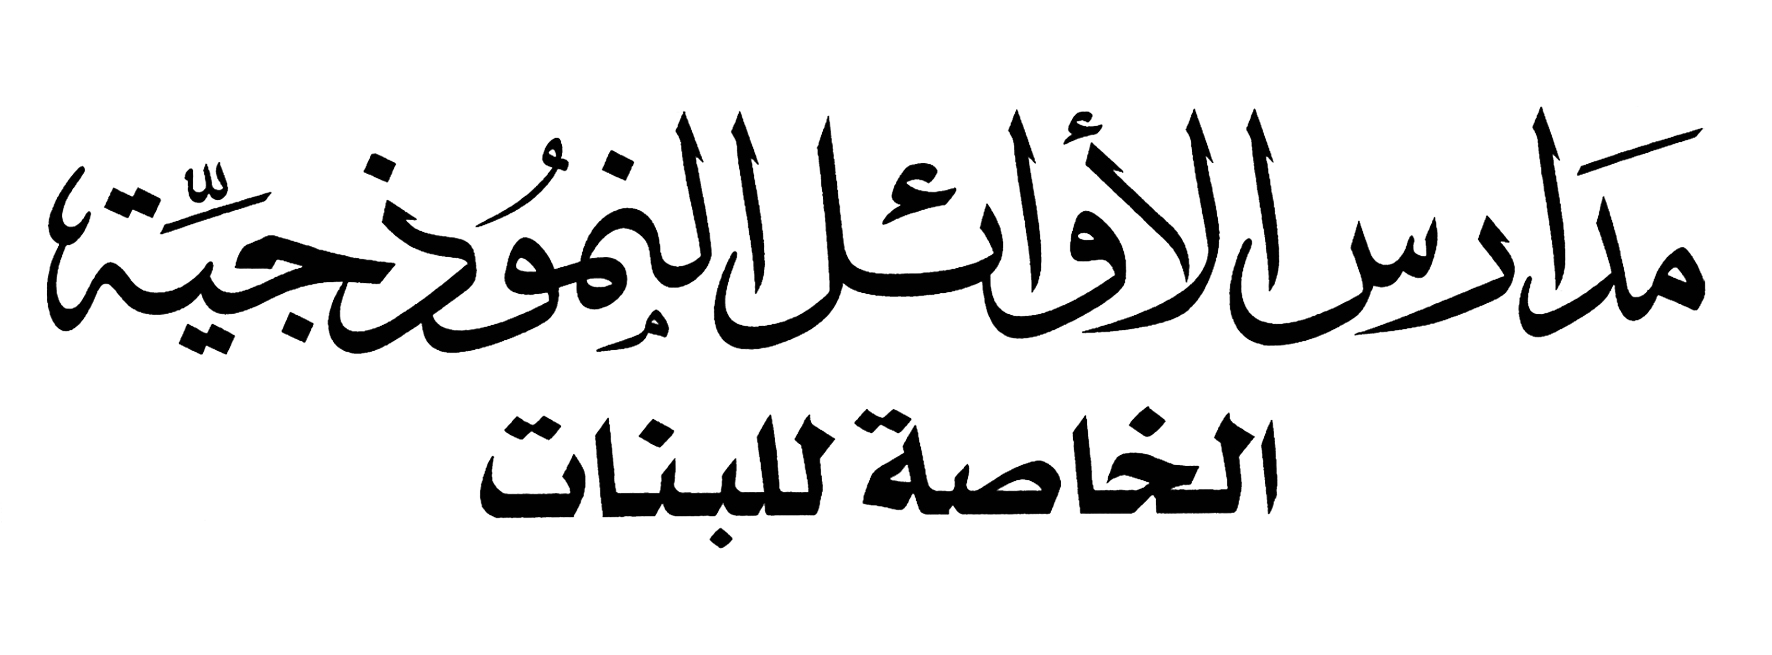 مَدَارس الأوائل النمُوذجيَّة
الخاصة للبنات